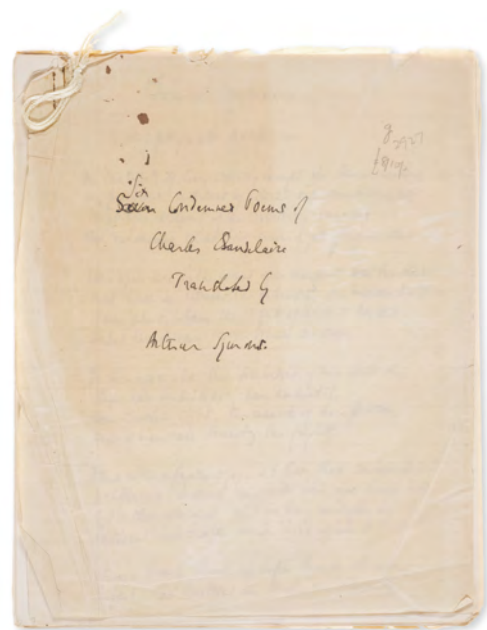 Six
Seven Condemned Poems of
Charles Baudelaire
Translated by
Arthur Symons.